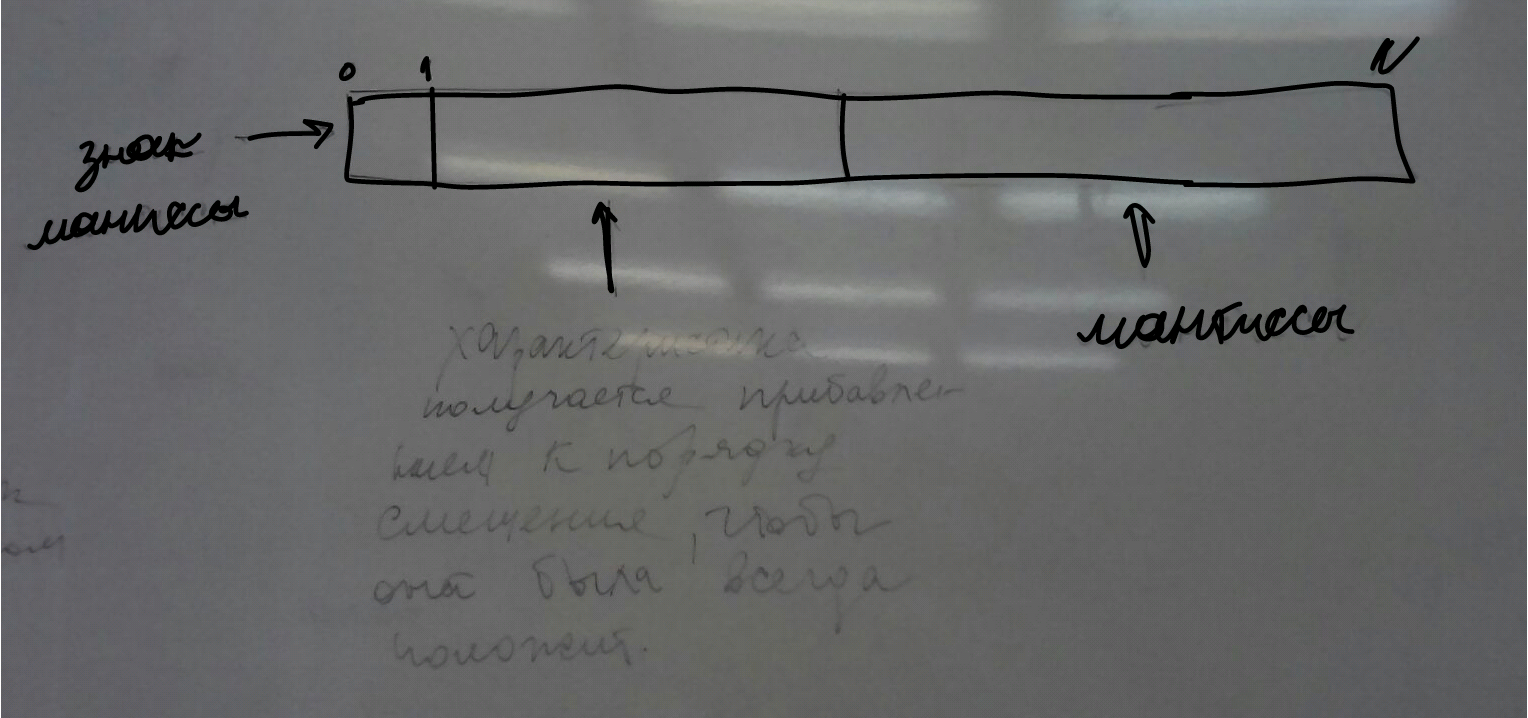 0 1 N
знак
мантисы
мантиссы
характеристика
получается прибавле-
нием к порядку
смещения, чтобы
она была всегда
положит.